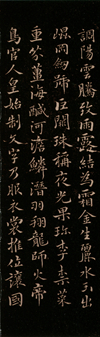 調陽雲騰致雨露結為霜金生麗水玉出
崐岡劍號巨闕珠稱夜光果珍李柰菜
重芥薑海鹹河澹鱗潛羽翔龍師火帝
鳥官人皇始制文字乃服衣裳推位讓國